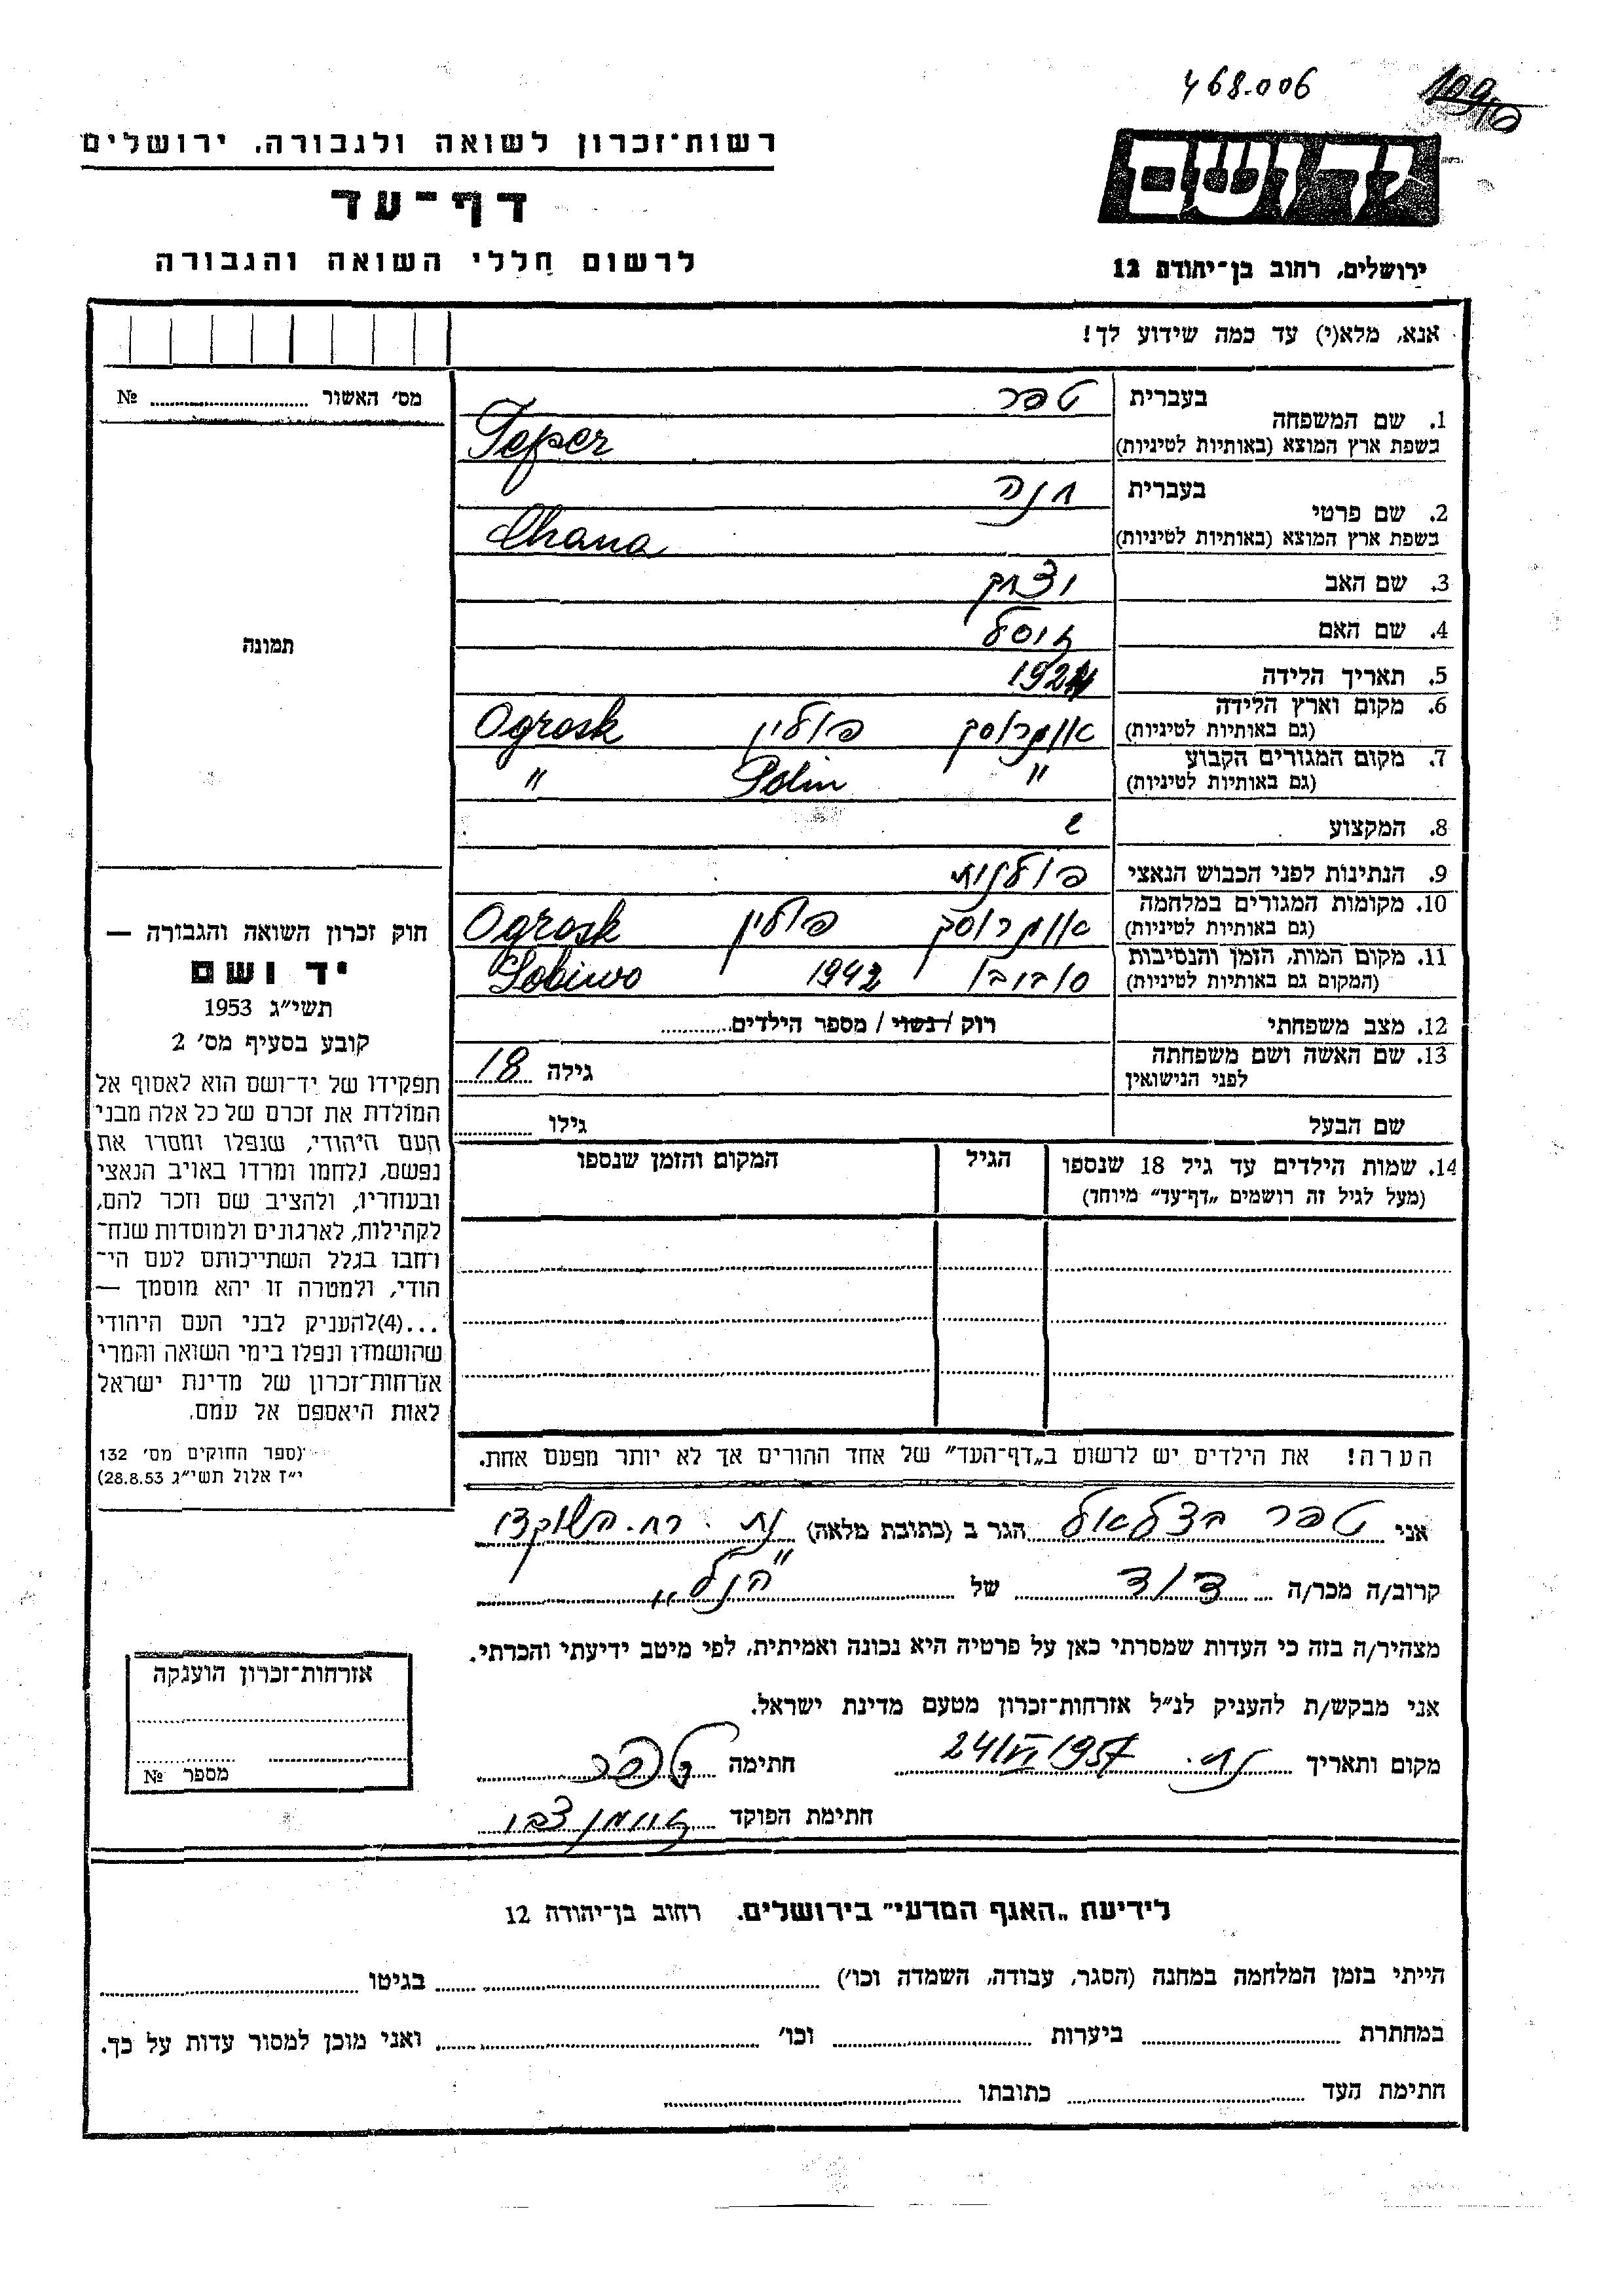 468.006
רשות־זכרון לשואה ולגבורה, ירושלים
יד ושם
דף־עד
לרשום חללי השואה והגבורה
ירושלים, רחוב בן־יהודה 12
אנא, מלא(י) עד כמה שידוע לך!
מס׳ האשור № 
1. שם המשפחה בעברית טפר
בשפת ארץ המוצא (באותיות לטיניות) Teper
2. שם פרטי בעברית חנה
בשפת ארץ המוצא (באותיות לטיניות) Chana
3. שם האב יצחק
4. שם האם
תמונה
5. תאריך הלידה 1924
6. מקום וארץ הלידה (גם באותיות לטיניות) פולין Ogrosk
7. מקום המגורים הקבוע (גם באותיות לטיניות) " Polin "
8. המקצוע
9. הנתינות לפני הכבוש הנאצי פולנית
10. מקומות המגורים במלחמה (גם באותיות לטיניות) פולין Ogrosk
11. מקום המות, הזמן והנסיבות (המקום גם באותיות לטיניות) 1942 Sobiwo
12. מצב משפחתי רוק / נשוי / מספר הילדים
13. שם האשה ושם משפחתה לפני הנישואין גילה 18
שם הבעל גילו
14. שמות הילדים עד גיל 18 שנספו הגיל המקום והזמן שנספו
(מעל לגיל זה רושמים „דף־עד” מיוחד)
חוק זכרון השואה והגבורה —
יד ושם
תשי״ג 1953
קובע בסעיף מס׳ 2
תפקידו של יד־ושם הוא לאסוף אל
המולדת את זכרם של כל אלה מבני
העם היהודי, שנפלו ומסרו את
נפשם, נלחמו ומרדו באויב הנאצי
ובעוזריו, ולהציב שם וזכר להם,
לקהילות, לארגונים ולמוסדות שנח־
רבו בגלל השתייכותם לעם הי־
הודי, ולמטרה זו יהא מוסמך —
...(4)להעניק לבני העם היהודי
שהושמדו ונפלו בימי השואה והמרי
אזרחות־זכרון של מדינת ישראל
לאות היאספם אל עמם.
(ספר החוקים מס׳ 132
י״ז אלול תשי״ג 28.8.53)
הערה! את הילדים יש לרשום ב„דף־העד” של אחד ההורים אך לא יותר מפעם אחת.
אני טפר בצלאל הגר ב (כתובת מלאה)
קרוב/ה מכר/ה דוד של הנ"ל
מצהיר/ה בזה כי העדות שמסרתי כאן על פרטיה היא נכונה ואמיתית, לפי מיטב ידיעתי והכרתי.
אני מבקש/ת להעניק לנ״ל אזרחות־זכרון מטעם מדינת ישראל.
מקום ותאריך 24/VI 1957 חתימה טפר
חתימת הפוקד
אזרחות־זכרון הוענקה
מספר №
לידיעת „האגף המדעי” בירושלים. רחוב בן־יהודה 12
הייתי בזמן המלחמה במחנה (הסגר, עבודה, השמדה וכו׳) בגיטו
במחתרת ביערות וכו׳ ואני מוכן למסור עדות על כך.
חתימת העד כתובתו